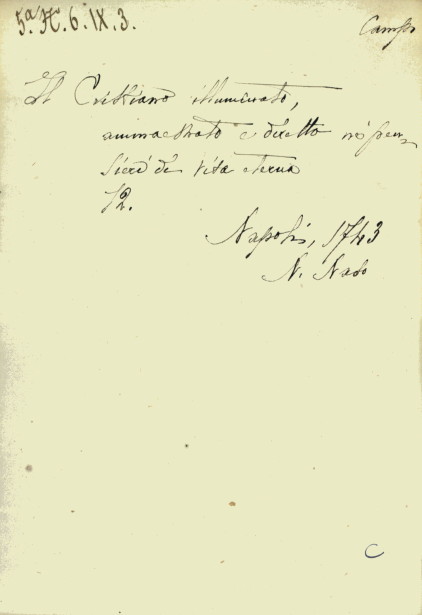 5.ª H. 6. IX. 3.
Campo
Il Cristiano illuminato,
ammaestrato e diretto ne' pen-
sieri di vita eterna
12.
Napoli, 1743
N. Naso
C